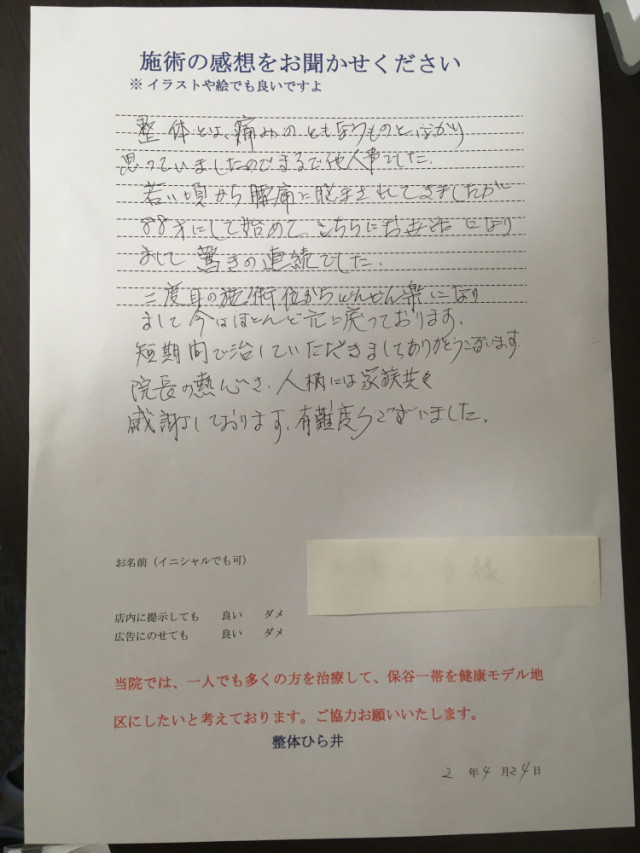 施術の感想をお聞かせください
※イラストや絵でも良いですよ
整体とは、痛みのともなうものとばかり
思っていましたのでまるで他人事でした。
若い頃から腰痛に悩まされてきましたが
88才にして始めて、こちらにお世話になり
まして驚きの連続でした。
二度目の施術位からどんどん楽になり
まして今はほとんど元に戻っております。
短期間で治していただきましてありがとうございます
院長の熱心さ、人柄には家族共々
感謝しております。有難度うございました。
お名前（イニシャルでも可）
様
店内に提示しても 良い ダメ
広告にのせても 良い ダメ
当院では、一人でも多くの方を治療して、保谷一帯を健康モデル地
区にしたいと考えております。ご協力お願いいたします。
整体ひら井
2 年 4 月 24 日